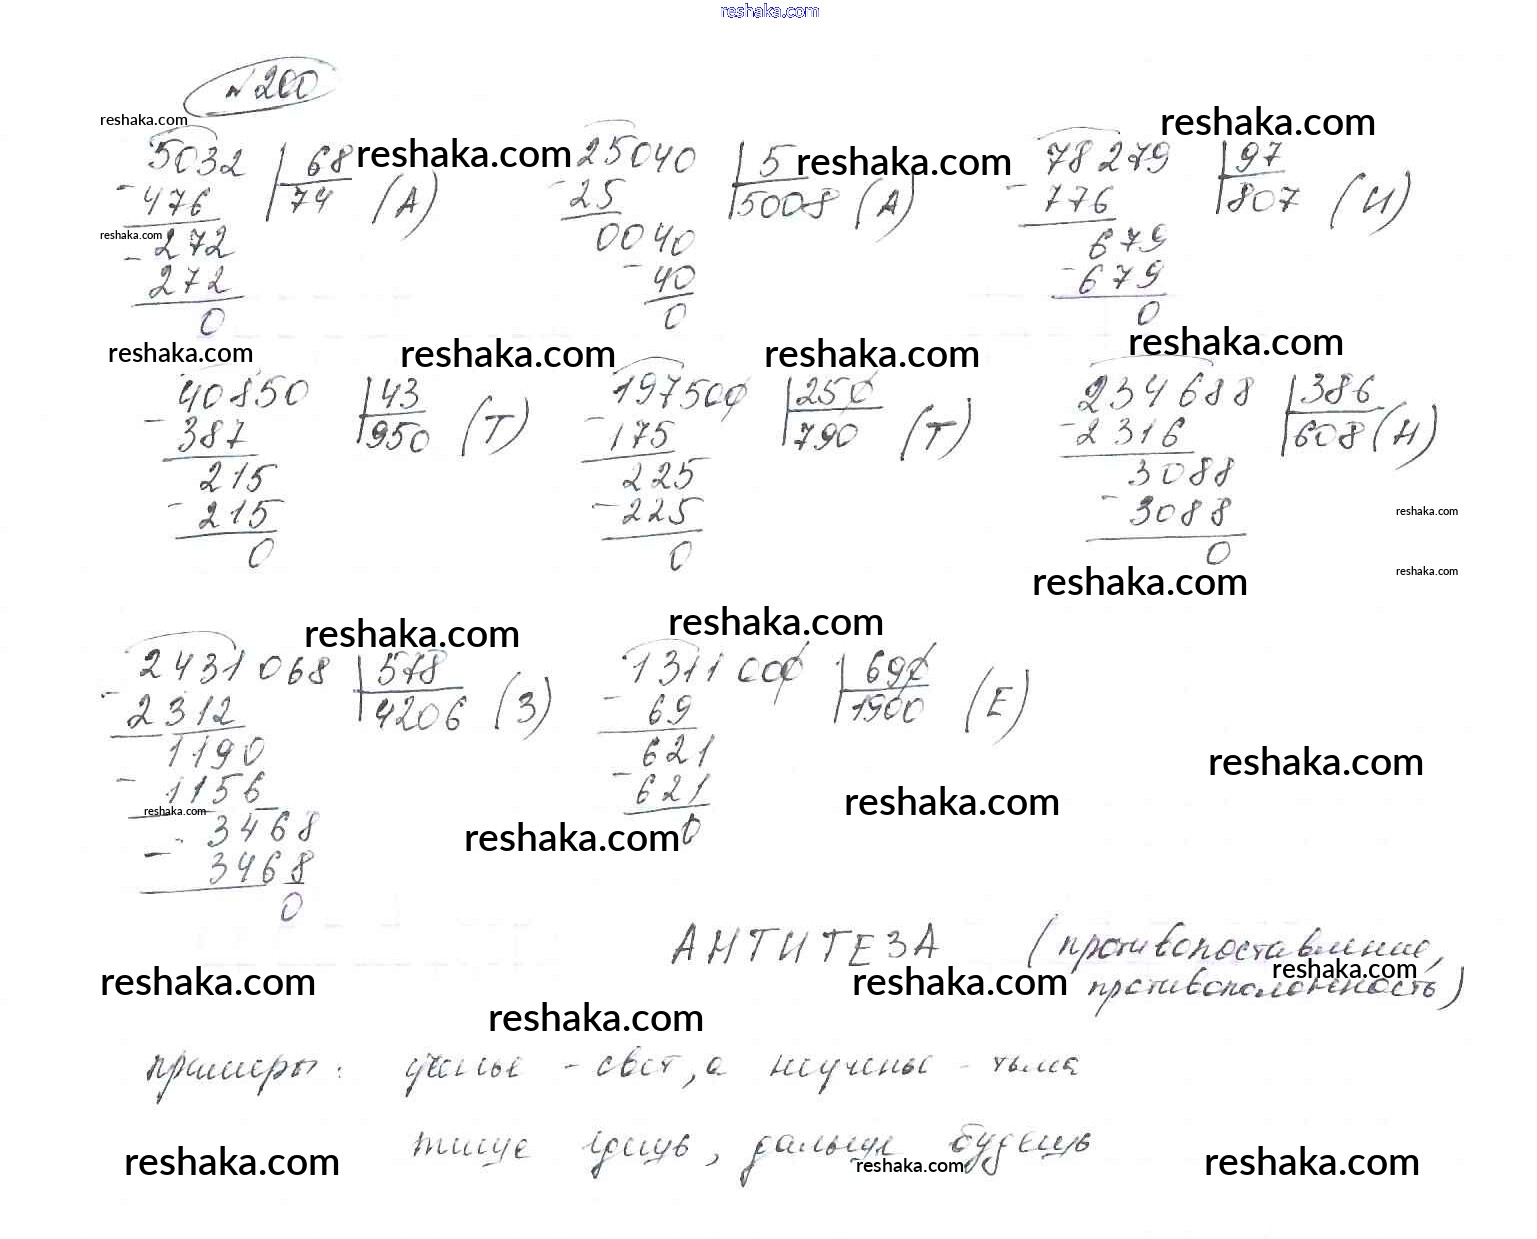 reshaka.com
№ 200
reshaka.com
5032 | 68
- 476 | 74 (А)
reshaka.com
- 272
272
0
reshaka.com
25040 | 5
- 25 | 5008 (А)
0040
- 40
0
reshaka.com
reshaka.com
78279 | 97
- 776 | 807 (И)
679
- 679
0
reshaka.com
reshaka.com
reshaka.com
reshaka.com
40850 | 43
- 387 | 950 (Т)
215
- 215
0
197500 | 250
- 175 | 790 (Т)
225
- 225
0
234688 | 386
- 2316 | 608 (Н)
3088
- 3088
0
reshaka.com
reshaka.com
reshaka.com
reshaka.com
reshaka.com
2431068 | 578
- 2312 | 4206 (З)
1190
- 1156
reshaka.com
3468
- 3468
0
1311000 | 690
- 69 | 1900 (Е)
621
- 621
0
reshaka.com
reshaka.com
reshaka.com
АНТИТЕЗА (противопоставление,
противоположность)
reshaka.com
reshaka.com
reshaka.com
reshaka.com
примеры: ученье - свет, а неученье - тьма
тише едешь, дальше будешь
reshaka.com
reshaka.com
reshaka.com